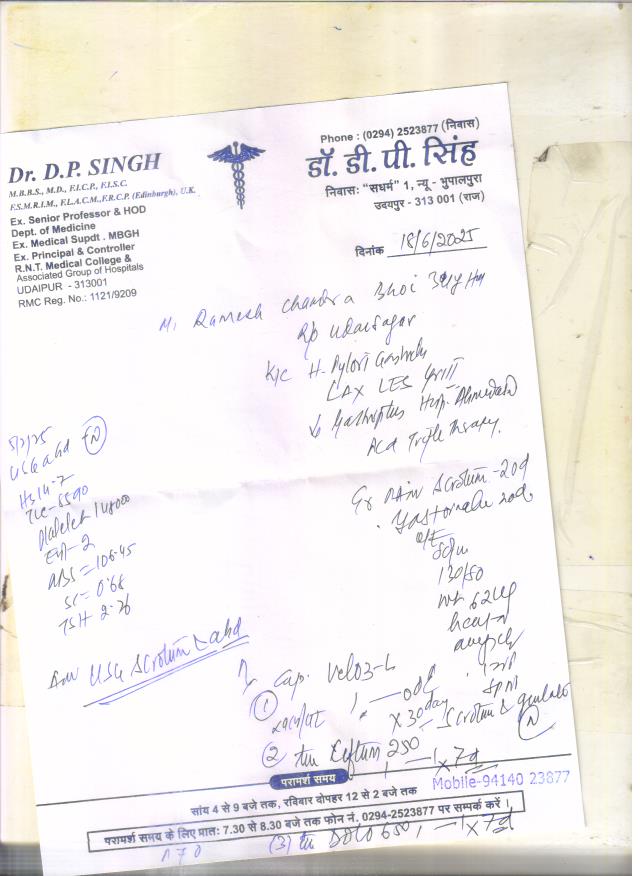 Phone : (0294) 2523877 (निवास)
Dr. D.P. SINGH
डॉ. डी. पी. सिंह
M.B.B.S., M.D., F.I.C.P., F.I.S.C.
F.S.M.R.I.M., F.I.A.C.M., F.R.C.P. (Edinburgh), U.K.
निवासः "सधर्म" 1, न्यू - भुपालपुरा
उदयपुर - 313 001 (राज)
Ex. Senior Professor & HOD
Dept. of Medicine
Ex. Medical Supdt . MBGH
Ex. Principal & Controller
R.N.T. Medical College &
Associated Group of Hospitals
UDAIPUR - 313001
RMC Reg. No.: 1121/9209
दिनांक 18/6/2025
Ramesh Chandra Bhoi
R/o Udaisagar
K/C H. Pylori Gastritis
LAX LES
Hosp. Ahmedabad
Triple Therapy
Pain Scrotum - 20d
O/E
130/80
Wt 62 kg
5/2/25
USG abd (N)
TLC - 5590
Platelet
ABS = 106.45
SC = 0.68
TSH 2.76
Adv USG Scrotum & abd
Scrotum &
(N)
(1) Cap. Veloz-L
x 30 day
(2) 250
1 — 1 x 7d
परामर्श समय
Mobile-94140 23877
सांय 4 से 9 बजे तक, रविवार दोपहर 12 से 2 बजे तक
परामर्श समय के लिए प्रातः 7.30 से 8.30 बजे तक फोन नं. 0294-2523877 पर सम्पर्क करें ।
(3) DOLO 650 1 — 1 x 7d